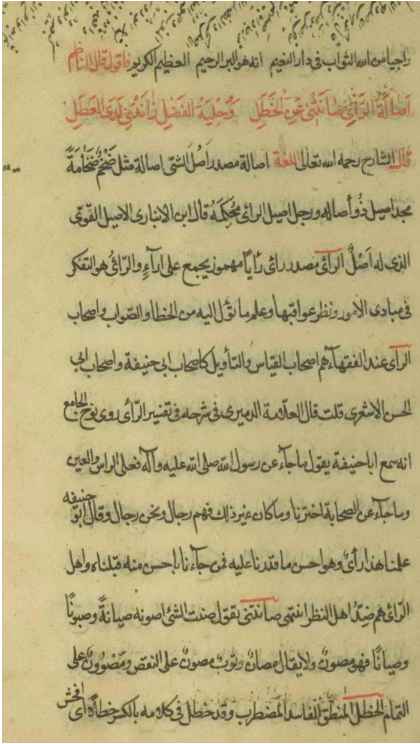 راجيا من الله الثواب فى دار النعيم انه هو البر الرحيم العظيم الكريم فاقول قال الناظم
اصالة الرأي صانتنى عن الخطل وحلية الفضل زانتنى لدى العطل
قال الشارح رحمه الله تعالى اللغة اصالة مصدر اصل الشئ اصالة مثل ضخم ضخامة
مجد اصيل ذو اصالة ورجل اصيل الرائ محكمه قال ابن الانبارى الاصيل القوى
الذى له اصل الرائ مصدر راى رأيا مهموز يجمع على ارآء والرائ هو التفكر
فى مبادى الامور ونظر عواقبها وعلم ما تؤل اليه من الخطا والصواب واصحاب
الرأى عند الفقهآء هم اصحاب القياس والتأويل كاصحاب ابى حنيفة واصحاب ابى
الحسن الاشعرى قلت قال العلامة الدميرى فى شرحه فى تفسير الرأى روى نوح الجامع
انه سمع ابا حنيفة يقول ما جآء عن رسول الله صلى الله عليه وآله فعلى الراس والعين
وما جآء عن الصحابة اخترنا وما كان غير ذلك فهم رجال ونحن رجال وقال ابو حنيفه
علمنا هذا رأى وهو احسن ما قدرنا عليه فمن جآءنا باحسن منه قبلناه واهل
الرائ هم ضد اهل النظر انتهى صانتنى يقول صنت الشئ اصونه صيانة وصونا
وصيانا فهو مصون ولا يقال مصان وثوب مصون على النقص ومصوون على
التمام الخطل المنطق الفاسد المضطرب وقد خطل فى كلامه بالكسر خطلا اى افحش